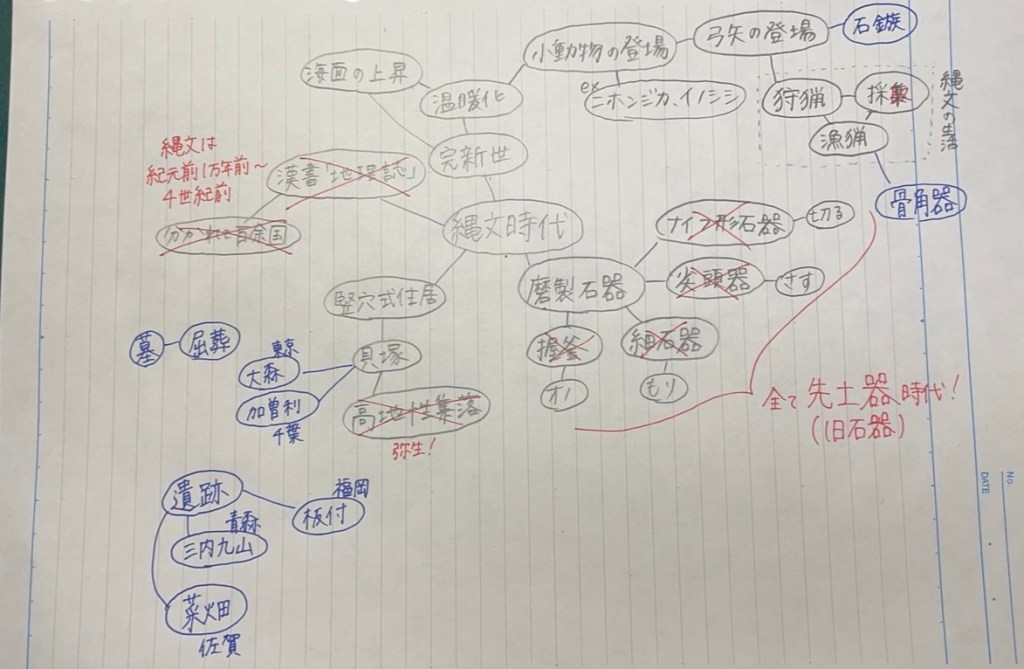 海面の上昇
温暖化
完新世
小動物の登場
ex
ニホンジカ、イノシシ
弓矢の登場
石鏃
狩猟
採集
漁猟
縄文の生活
骨角器
縄文は
紀元前1万年前〜
4世紀前
漢書「地理誌」
分かれて百余国
縄文時代
磨製石器
ナイフ形石器
切る
尖頭器
さす
握斧
オノ
細石器
もり
全て先土器時代!
(旧石器)
竪穴式住居
貝塚
東京
大森
加曽利
千葉
高地性集落
弥生!
墓
屈葬
遺跡
福岡
板付
青森
三内丸山
菜畑
佐賀
No.
DATE